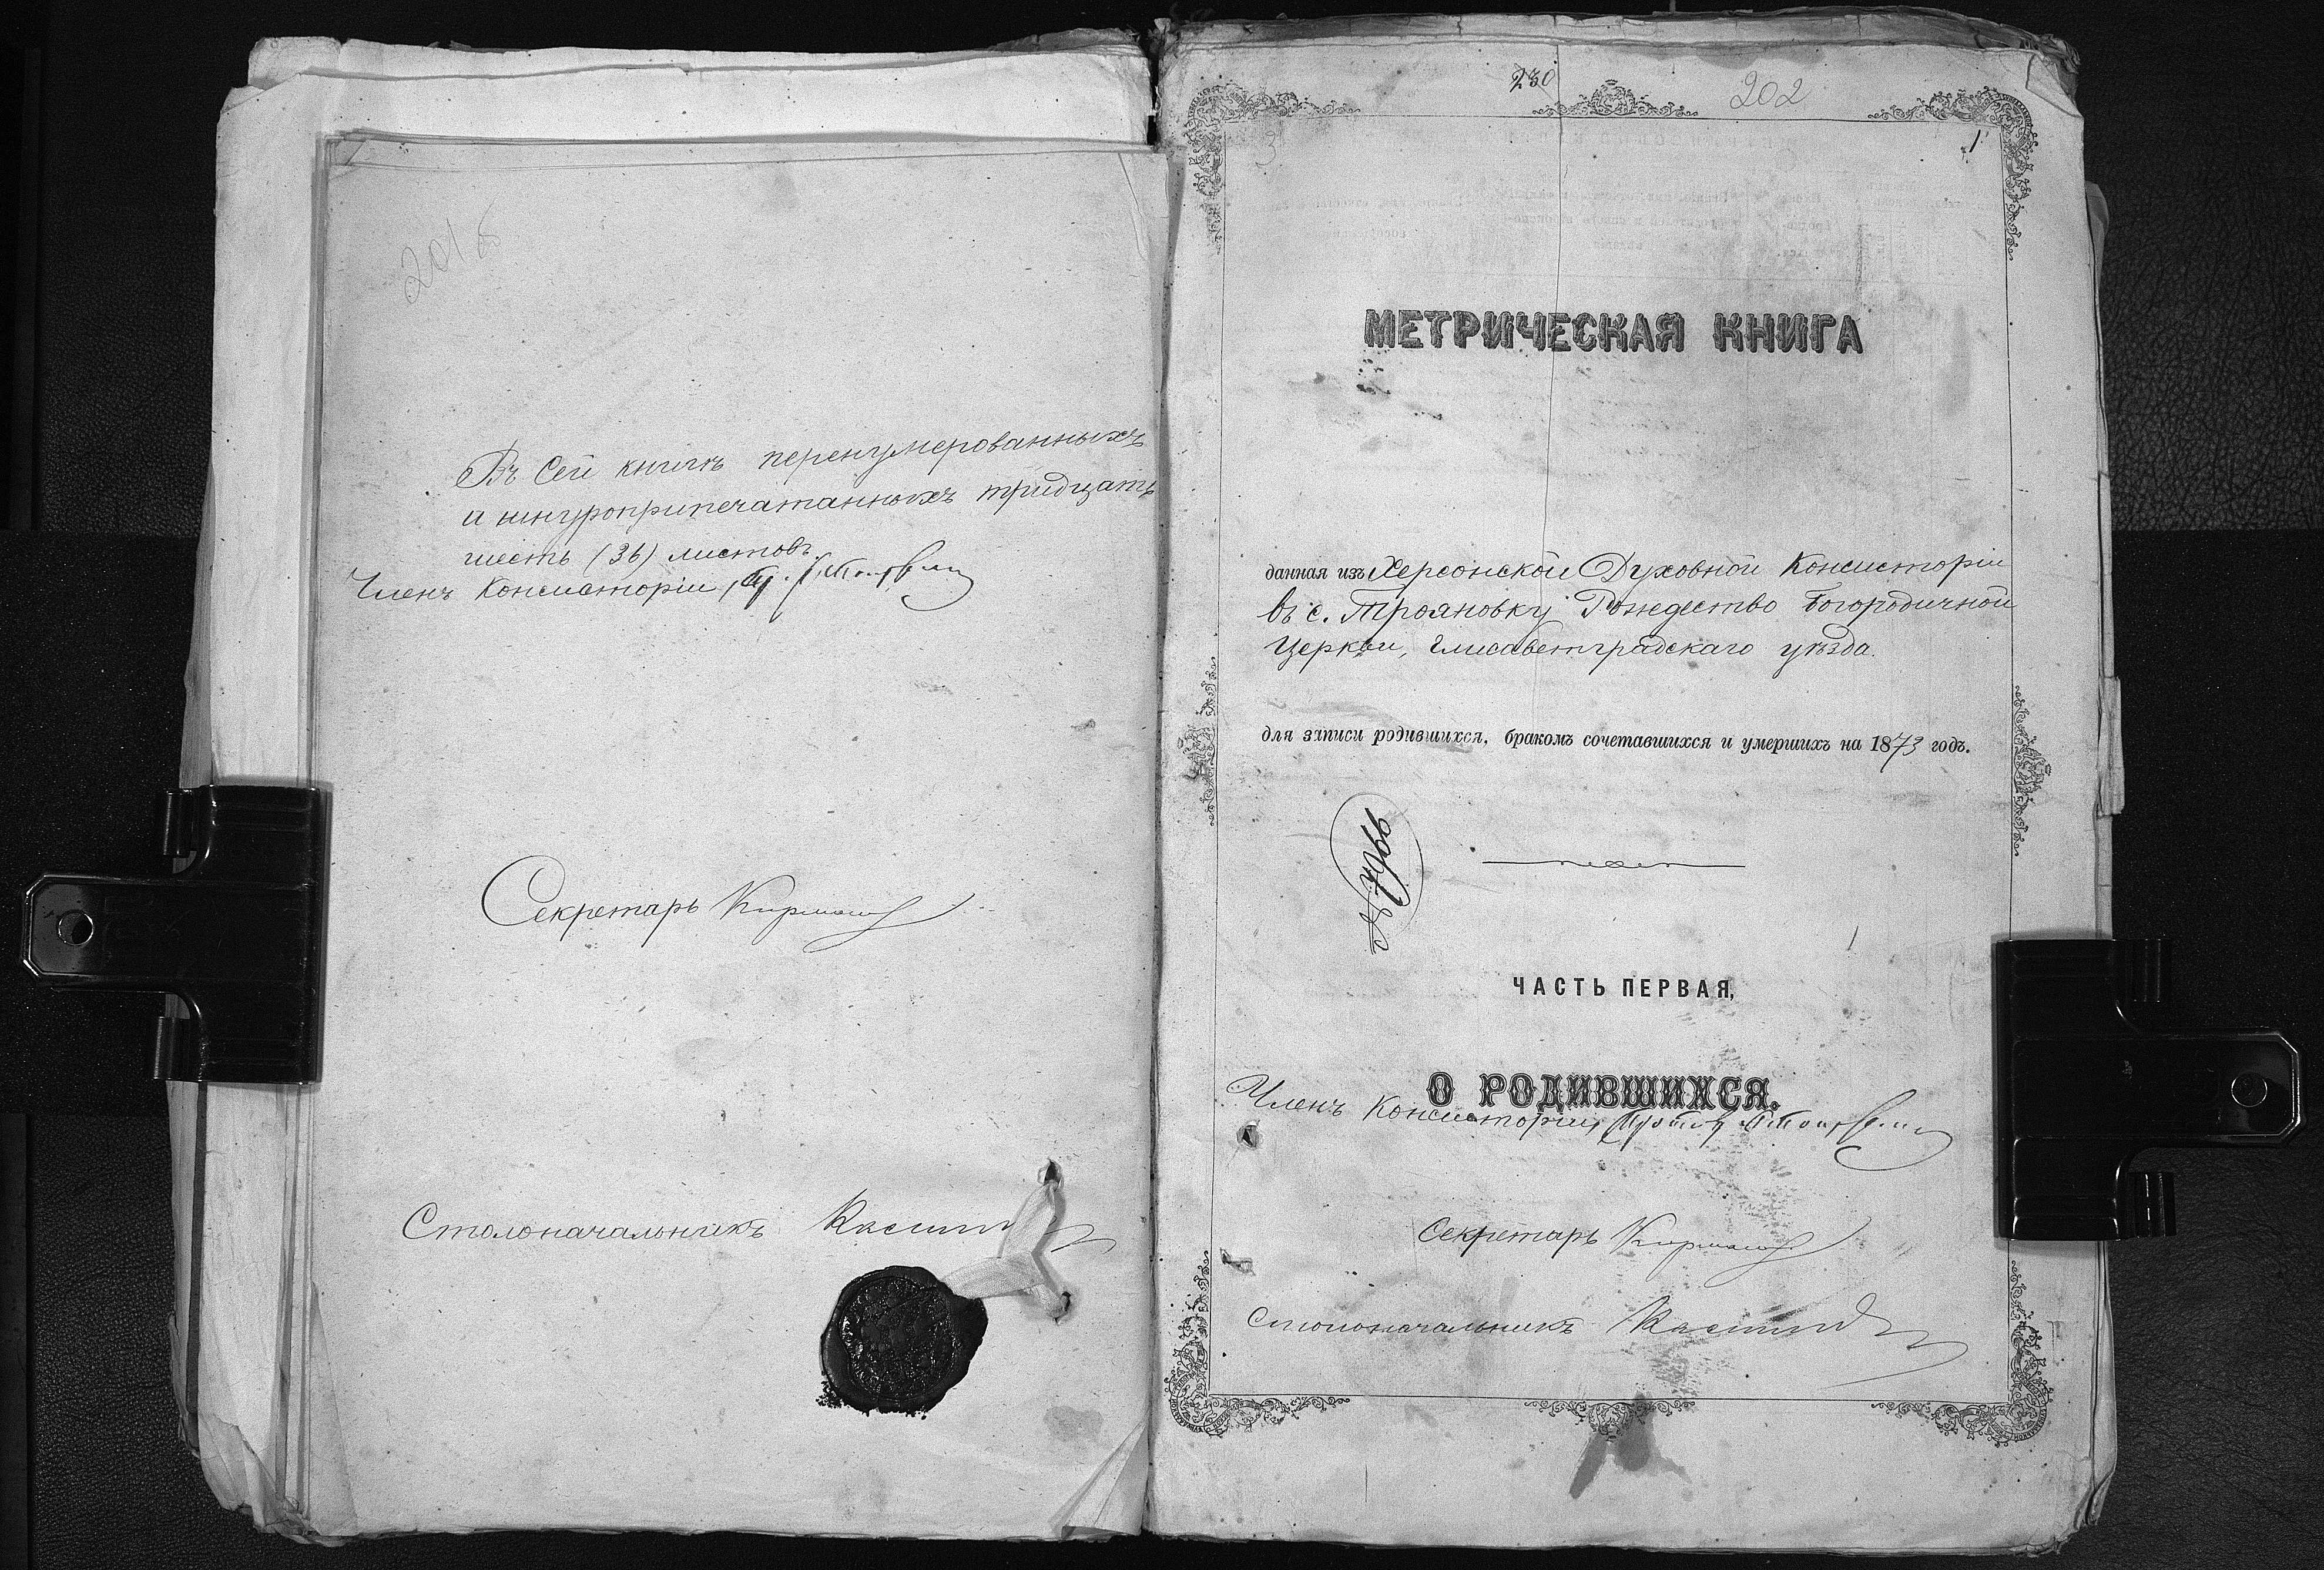 201 б
Въ сей книгѣ перенумерованныхъ
и шнуроприпечатанныхъ тридцать
шесть (36) листовъ.
Членъ Консисторіи,
Секретарь
Столоначальникъ
230
202
1
3
МЕТРИЧЕСКАЯ КНИГА
данная изъ Херсонской Духовной Консисторіи
въ с. Трояновку Рождество Богородичной
Церкви, Елисаветградскаго уѣзда.
для записи родившихся, бракомъ сочетавшихся и умершихъ на 1873 годъ.
№ 7966
ЧАСТЬ ПЕРВАЯ,
О РОДИВШИХСЯ.
Членъ Консисторіи,
Секретарь
Столоначальникъ